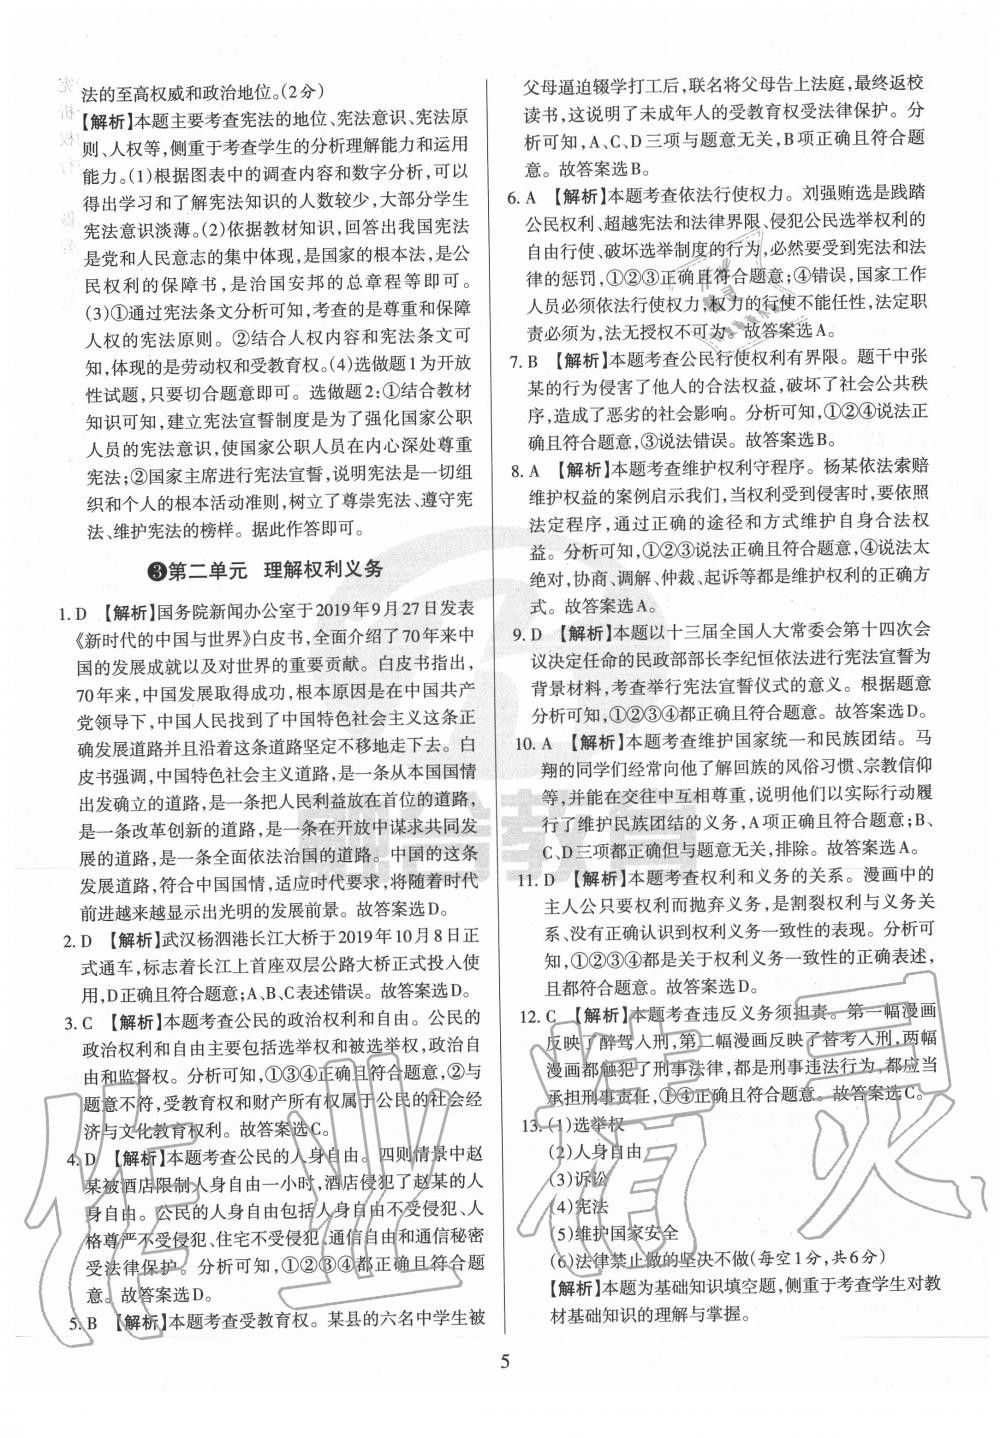 法的至高权威和政治地位。(2分)
【解析】本题主要考查宪法的地位、宪法意识、宪法原
则、人权等,侧重于考查学生的分析理解能力和运用
能力。(1)根据图表中的调查内容和数字分析,可以
得出学习和了解宪法知识的人数较少,大部分学生
宪法意识淡薄。(2)依据教材知识,回答出我国宪法
是党和人民意志的集中体现,是国家的根本法,是公
民权利的保障书,是治国安邦的总章程等即可。
(3)①通过宪法条文分析可知,考查的是尊重和保障
人权的宪法原则。②结合人权内容和宪法条文可
知,体现的是劳动权和受教育权。(4)选做题1为开放
性试题,只要切合题意即可。选做题2:①结合教材
知识可知,建立宪法宣誓制度是为了强化国家公职
人员的宪法意识,使国家公职人员在内心深处尊重
宪法;②国家主席进行宪法宣誓,说明宪法是一切组
织和个人的根本活动准则,树立了尊崇宪法、遵守宪
法、维护宪法的榜样。据此作答即可。
❸第二单元 理解权利义务
1. D 【解析】国务院新闻办公室于2019年9月27日发表
《新时代的中国与世界》白皮书,全面介绍了70年来中
国的发展成就以及对世界的重要贡献。白皮书指出,
70年来,中国发展取得成功,根本原因是在中国共产
党领导下,中国人民找到了中国特色社会主义这条正
确发展道路并且沿着这条道路坚定不移地走下去。白
皮书强调,中国特色社会主义道路,是一条从本国国情
出发确立的道路,是一条把人民利益放在首位的道路,
是一条改革创新的道路,是一条在开放中谋求共同发
展的道路,是一条全面依法治国的道路。中国的这条
道路,符合中国国情,适应时代要求,将随着时代
前进越来越显示出光明的发展前景。故答案选D。
2. D 【解析】武汉杨泗港长江大桥于2019年10月8日正
式通车,标志着长江上首座双层公路大桥正式投入使
用,D正确且符合题意;A、B、C表述错误。故答案选D。
3. C 【解析】本题考查公民的政治权利和自由。公民的
政治权利和自由主要包括选举权和被选举权、政治自
由和监督权。分析可知,①③④正确且符合题意,②与
题意不符,受教育权和财产所有权属于公民的社会经
济与文化教育权利。故答案选C。
4. D 【解析】本题考查公民的人身自由。四则情景中赵
某被酒店限制人身自由一小时,酒店侵犯了赵某的人
身自由。公民的人身自由包括人身自由不受侵犯、人
格尊严不受侵犯、住宅不受侵犯、通信自由和通信秘密
受法律保护。分析可知,①②③④都正确且符合题
意。故答案选D。
5. B 【解析】本题考查受教育权。某县的六名中学生被
父母逼迫辍学打工后,联名将父母告上法庭,最终返校
读书,这说明了未成年人的受教育权受法律保护。分
析可知,A、C、D三项与题意无关,B项正确且符合题
意。故答案选B。
6. A 【解析】本题考查依法行使权力。刘强贿选是践踏
公民权利、超越宪法和法律界限、侵犯公民选举权利的
自由行使、破坏选举制度的行为,必然要受到宪法和法
律的惩罚,①②③正确且符合题意;④错误,国家工作
人员必须依法行使权力,权力的行使不能任性,法定职
责必须为,法无授权不可为。故答案选A。
7. B 【解析】本题考查公民行使权利有界限。题干中张
某的行为侵害了他人的合法权益,破坏了社会公共秩
序,造成了恶劣的社会影响。分析可知,①②④说法正
确且符合题意,③说法错误。故答案选B。
8. A 【解析】本题考查维护权利守程序。杨某依法索赔
维护权益的案例启示我们,当权利受到侵害时,要依照
法定程序,通过正确的途径和方式维护自身合法权
益。分析可知,①②③正确且符合题意,④说法太
绝对,协商、调解、仲裁、起诉等都是维权的正确方
式。故答案选A。
9. D 【解析】本题以十三届全国人大常委会第十四次会
议决定任命的民政部部长李纪恒依法进行宪法宣誓为
背景材料,考查举行宪法宣誓仪式的意义。根据题意
分析可知,①②③④都正确且符合题意。故答案选D。
10. A 【解析】本题考查维护国家统一和民族团结。马
翔的同学们经常向他了解回族的风俗习惯、宗教信仰
等,并能在交往中互相尊重,说明他们以实际行动履
行了维护民族团结的义务,A项正确且符合题意;B、
C、D三项都正确但与题意无关,排除。故答案选A。
11. D 【解析】本题考查权利和义务的关系。漫画中的
主人公只要权利而抛弃义务,是割裂权利与义务关
系、没有正确认识到权利义务一致性的表现。分析可
知,①②③④都是关于权利义务一致性的正确表述,
且都符合题意。故答案选D。
12. C 【解析】本题考查违反义务须担责。第一幅漫画
反映了醉驾入刑,第二幅漫画反映了替考入刑,两幅
漫画都触犯了刑事法律,都是刑事违法行为,都应当
承担刑事责任,①④正确且符合题意。故答案选C。
13. (1)选举权
(2)人身自由
(3)诉讼
(4)宪法
(5)维护国家安全
(6)法律禁止做的坚决不做(每空1分,共6分)
【解析】本题为基础知识填空题,侧重于考查学生对教
材基础知识的理解与掌握。
5
作业精灵